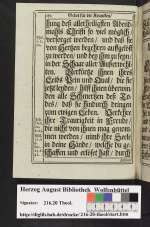 192 Gebet für die Kranken/
stung deß allerheiligsten Abend-
mahls Christi so viel möglich/
versorget werden/ und daß sie
von Herzen begehren aufgelöst
zu werden/ und bey ihm zu seyn
in der Schaar aller Auserwehl-
ten. Verkürtze ihnen ihres
Leibs Pein und Qual/ die sie
jetzt leiden/ hilff ihn überwin-
den alle Schmertzen des To-
des/ daß sie hindurch dringen
zum ewigen Leben. Verkehre
ihre Traurigkeit in Freude/
die nicht von ihnen mag genom-
men werden/ nimb ihre Seele
in deine Hände/ welche du ge-
schaffen und erlöset hast/ durch
Herzog August Bibliothek Wolfenbüttel
Signatur: 216.20 Theol.
http://diglib.hab.de/drucke/216-20-theol/start.htm